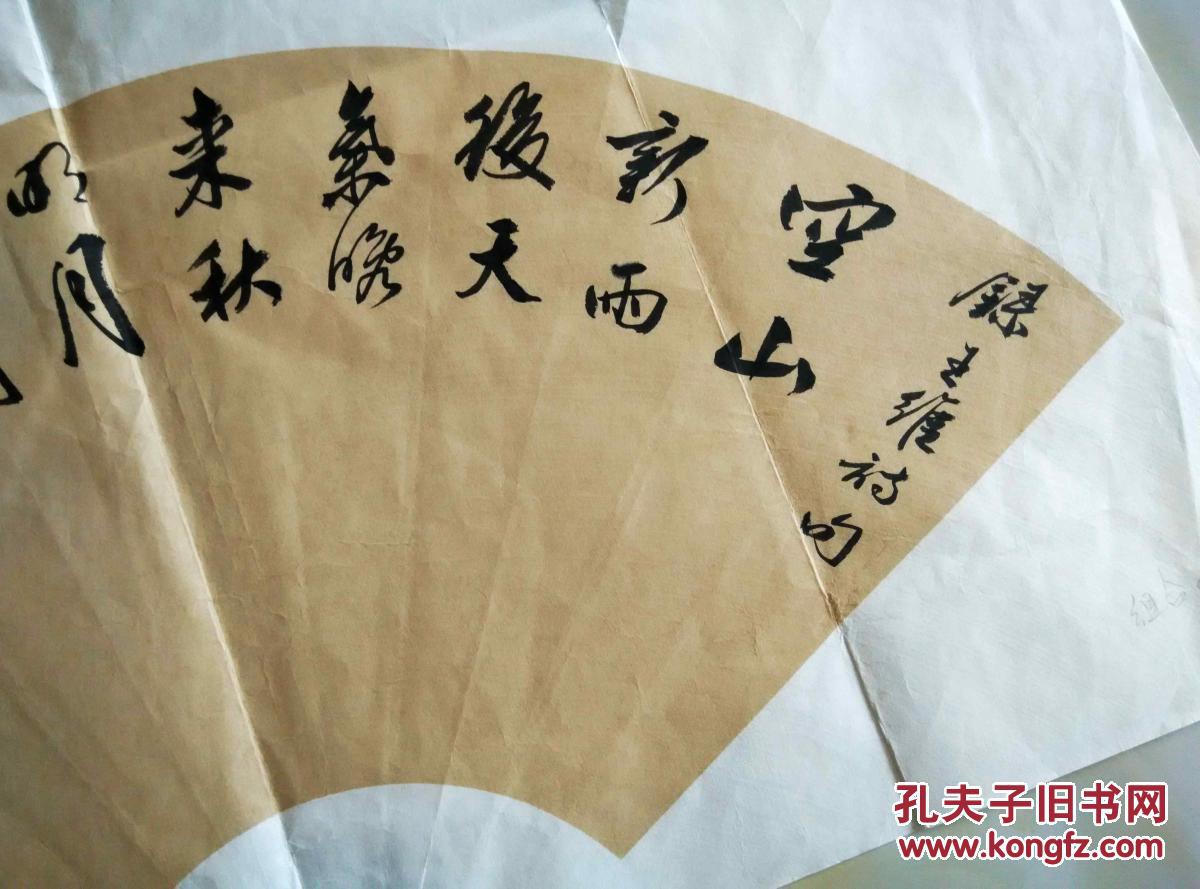 録王维詩句
空山
新雨
後天
氣晚
来秋
明月
组合
孔夫子旧书网
www.kongfz.com